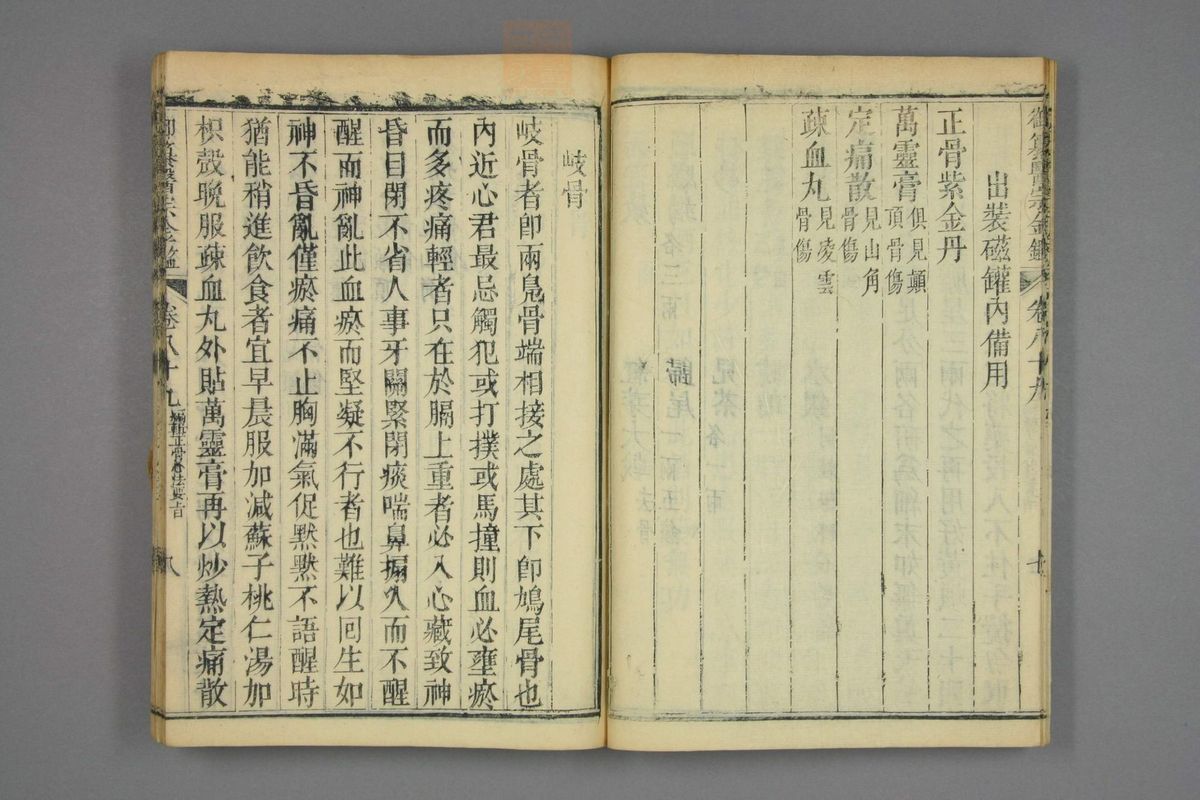 御纂醫宗金鑑 卷八十九
出裝磁罐內備用
正骨紫金丹
萬靈膏 俱見顛頂骨傷
定痛散 見山角骨傷
疎血丸 見凌雲骨傷
岐骨
岐骨者卽兩鳧骨端相接之處其下卽鳩尾骨也
內近心君最忌觸犯或打撲或馬撞則血必壅瘀
而多疼痛輕者只在於膈上重者必入心藏致神
昏目閉不省人事牙關緊閉痰喘鼻搧久而不醒
醒而神亂此血瘀而堅凝不行者也難以回生如
神不昏亂僅瘀痛不止胸滿氣促默默不語醒時
猶能稍進飲食者宜早晨服加減蘇子桃仁湯加
枳殼晚服疎血丸外貼萬靈膏再以炒熱定痛散
卷八十九 編輯正骨心法要旨 八